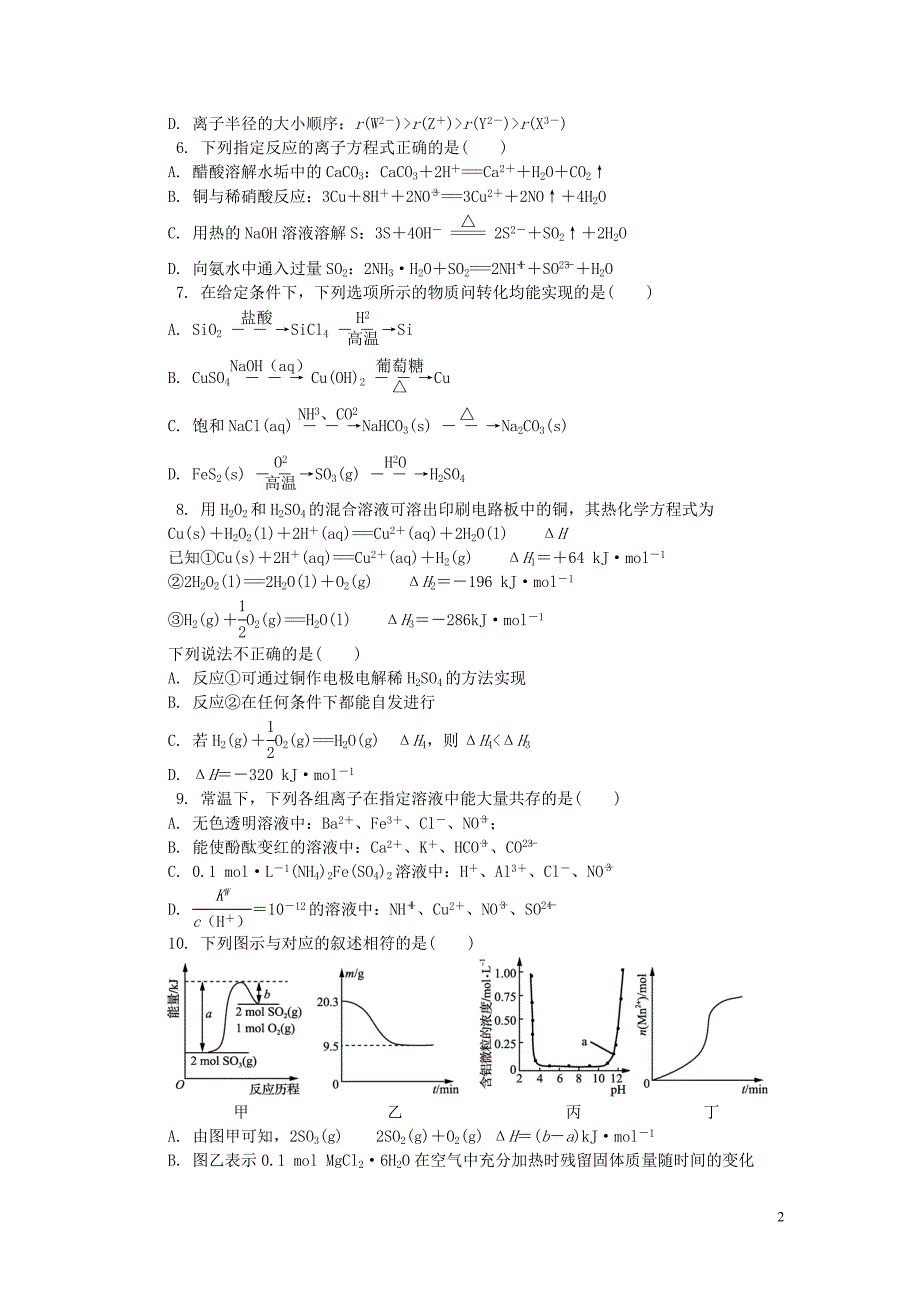 D. 离子半径的大小顺序：r(W²⁻)>r(Z⁺)>r(Y²⁻)>r(X³⁻)
6. 下列指定反应的离子方程式正确的是(　　)
A. 醋酸溶解水垢中的CaCO₃：CaCO₃＋2H⁺===Ca²⁺＋H₂O＋CO₂↑
B. 铜与稀硝酸反应：3Cu＋8H⁺＋2NO₃⁻===3Cu²⁺＋2NO↑＋4H₂O
C. 用热的NaOH溶液溶解S：3S＋4OH⁻ ==△== 2S²⁻＋SO₂↑＋2H₂O
D. 向氨水中通入过量SO₂：2NH₃·H₂O＋SO₂===2NH₄⁺＋SO₃²⁻＋H₂O
7. 在给定条件下，下列选项所示的物质间转化均能实现的是(　　)
A. SiO₂ 盐酸→SiCl₄ H2 高温→Si
B. CuSO₄ NaOH（aq）→ Cu(OH)₂ 葡萄糖 △→Cu
C. 饱和NaCl(aq) NH3、CO2→NaHCO₃(s) △→Na₂CO₃(s)
D. FeS₂(s) O2 高温→SO₃(g) H2O→H₂SO₄
8. 用H₂O₂和H₂SO₄的混合溶液可溶出印刷电路板中的铜，其热化学方程式为
Cu(s)＋H₂O₂(l)＋2H⁺(aq)===Cu²⁺(aq)＋2H₂O(l)　ΔH
已知①Cu(s)＋2H⁺(aq)===Cu²⁺(aq)＋H₂(g)　ΔH₁＝＋64 kJ·mol⁻¹
②2H₂O₂(l)===2H₂O(l)＋O₂(g)　ΔH₂＝－196 kJ·mol⁻¹
③H₂(g)＋1/2O₂(g)===H₂O(l)　ΔH₃＝－286kJ·mol⁻¹
下列说法不正确的是(　　)
A. 反应①可通过铜作电极电解稀H₂SO₄的方法实现
B. 反应②在任何条件下都能自发进行
C. 若H₂(g)＋1/2O₂(g)===H₂O(g)　ΔH₄，则 ΔH₄<ΔH₃
D. ΔH＝－320 kJ·mol⁻¹
9. 常温下，下列各组离子在指定溶液中能大量共存的是(　　)
A. 无色透明溶液中：Ba²⁺、Fe³⁺、Cl⁻、NO₃⁻；
B. 能使酚酞变红的溶液中：Ca²⁺、K⁺、HCO₃⁻、CO₃²⁻
C. 0.1 mol·L⁻¹(NH₄)₂Fe(SO₄)₂溶液中：H⁺、Al³⁺、Cl⁻、NO₃⁻
D. KW/c（H⁺）＝10⁻¹²的溶液中：NH₄⁺、Cu²⁺、NO₃⁻、SO₄²⁻
10. 下列图示与对应的叙述相符的是(　　)
能量/kJ
a
b
2 mol SO₂(g)
1 mol O₂(g)
2 mol SO₃(g)
O
反应历程
甲
m/g
20.3
9.5
0
t/min
乙
含铝微粒的浓度/mol·L⁻¹
1.00
0.75
0.50
0.25
0
a
2 4 6 8 10 12
pH
丙
n(Mn²⁺)/mol
0
t/min
丁
A. 由图甲可知，2SO₃(g)　2SO₂(g)＋O₂(g) ΔH＝(b－a)kJ·mol⁻¹
B. 图乙表示0.1 mol MgCl₂·6H₂O在空气中充分加热时残留固体质量随时间的变化
2